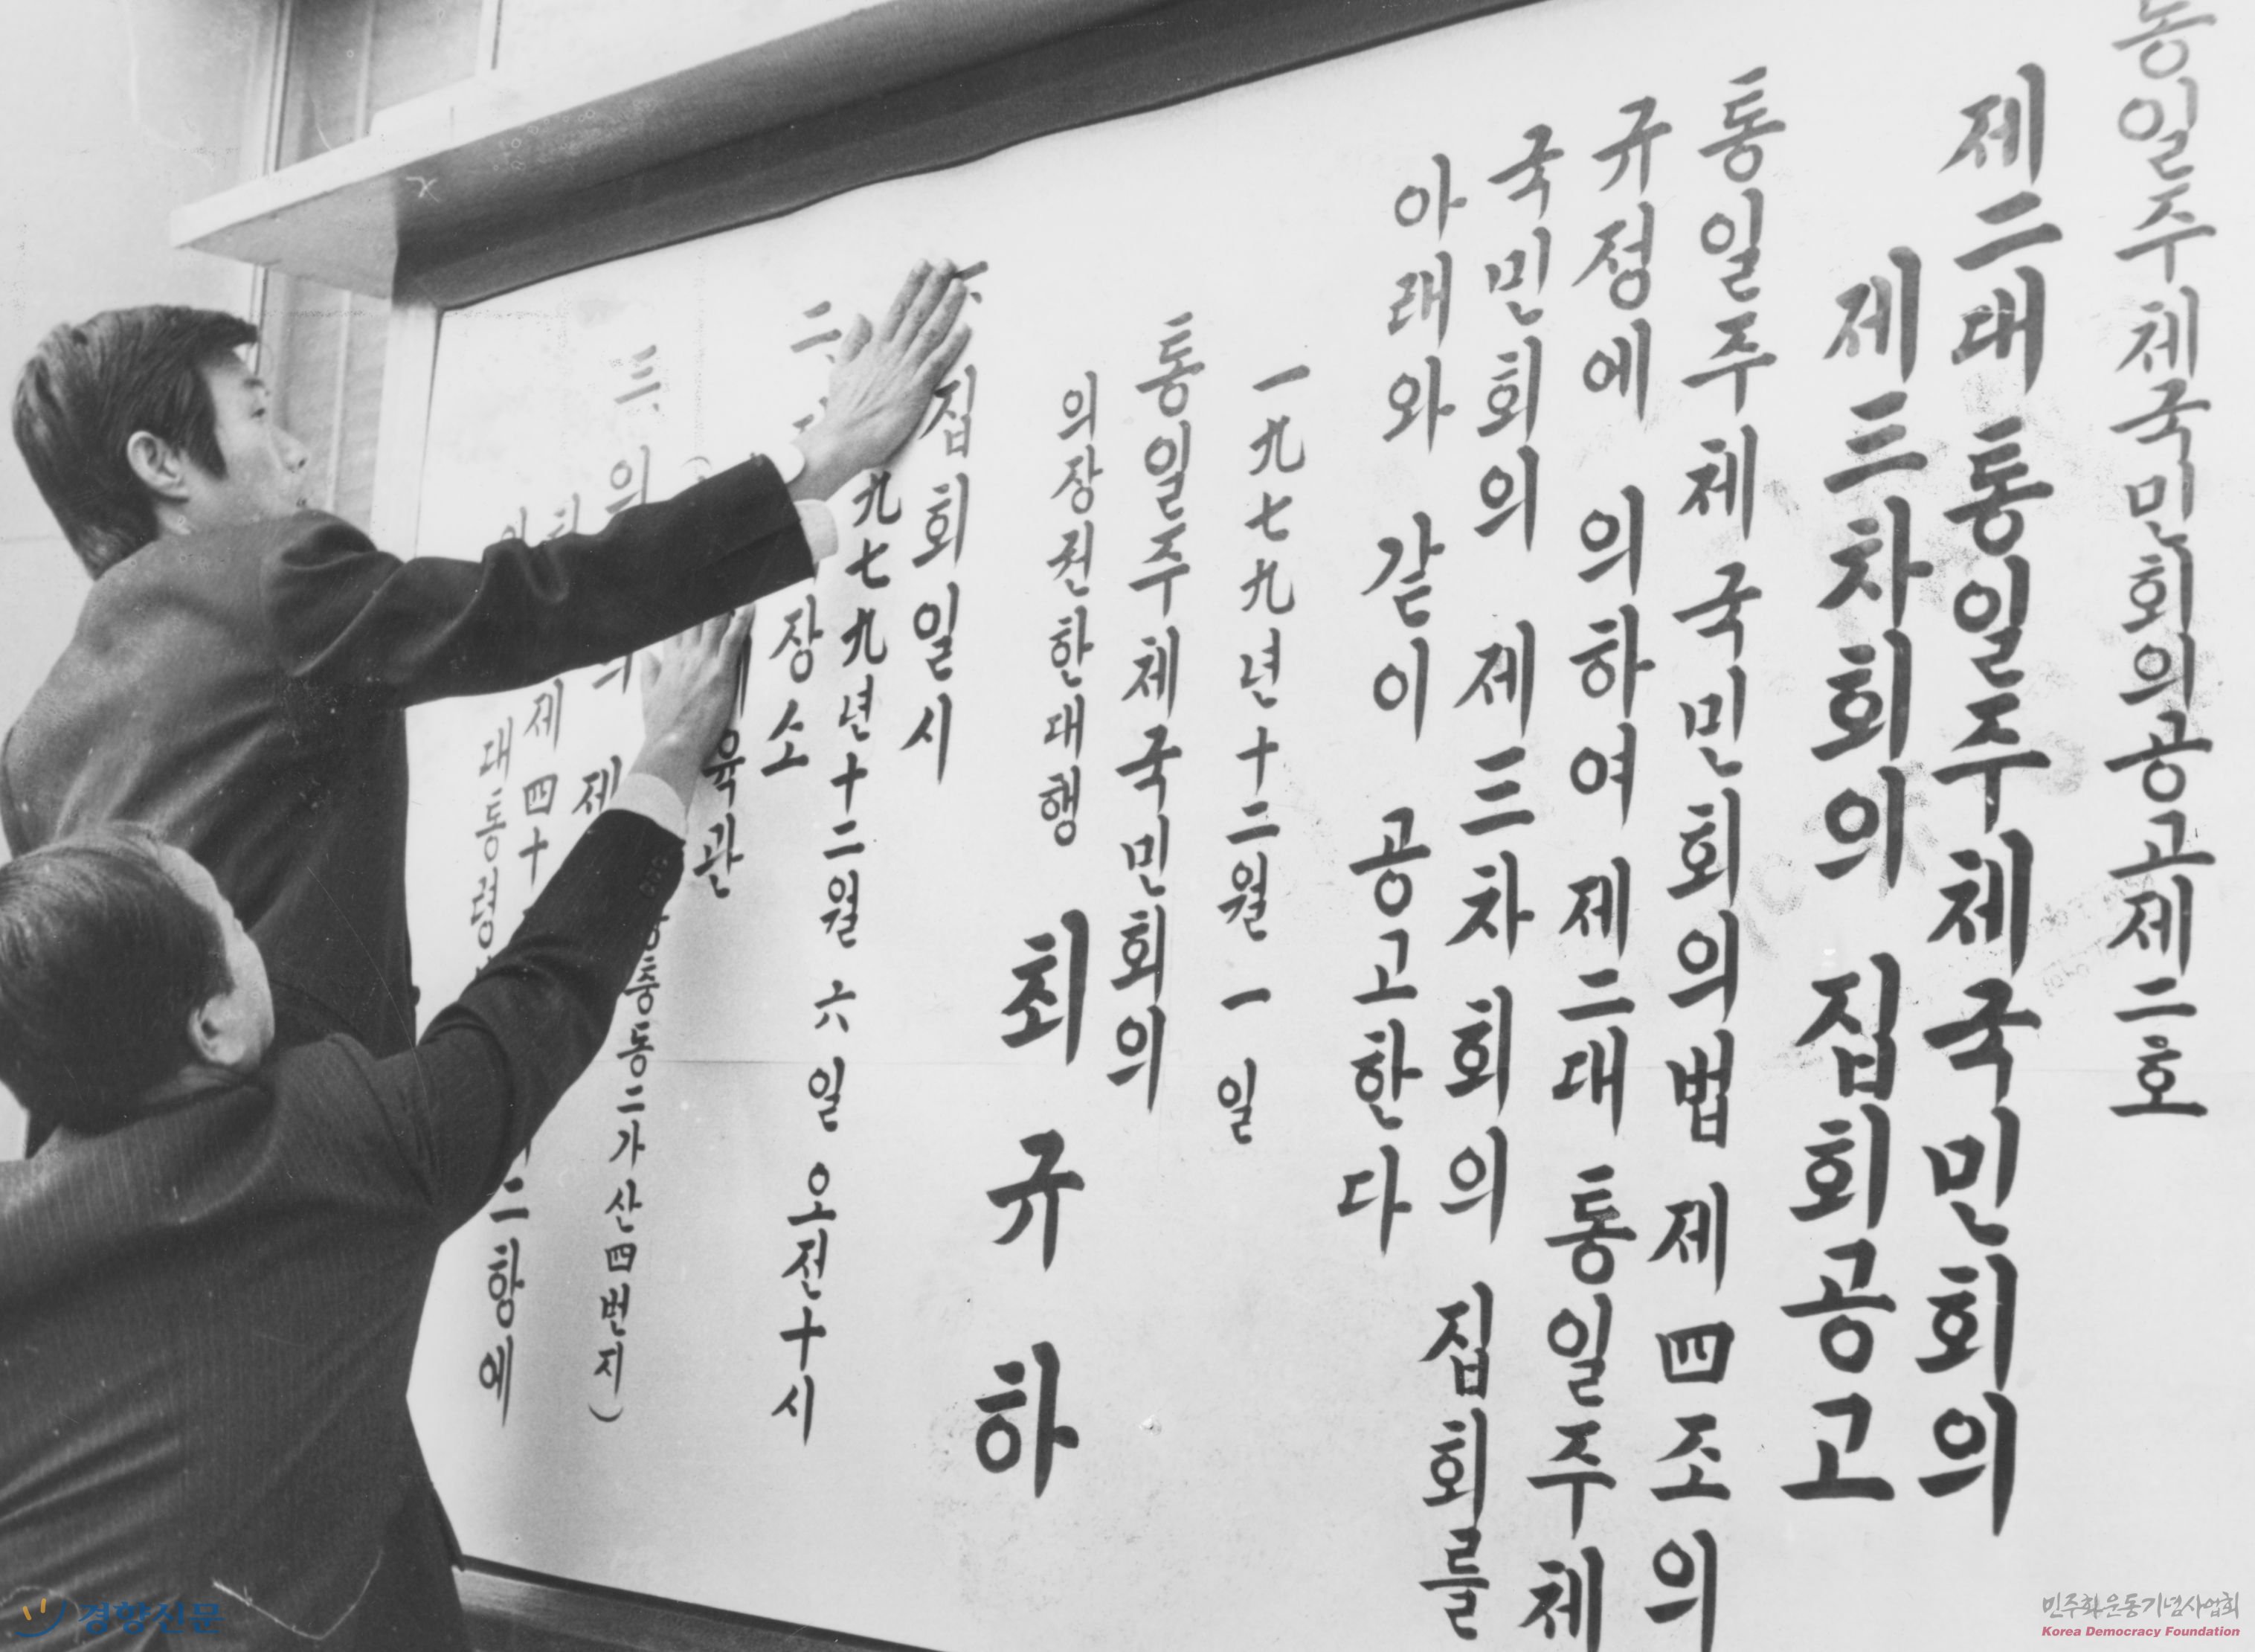 통일주체국민회의공고제二호
제二대 통일주체국민회의
제三차회의 집회공고
통일주체국민회의법 제四조의
규정에 의하여 제二대 통일주체
국민회의 제三차 회의 집회를
아래와 같이 공고한다
一九七九년十二월一일
통일주체국민회의
의장권한대행
최규하
집회일시
九七九년十二월 六일 오전十시
二、장소
육관
충동二가 산四번지)
三、의 제
제四十
대통령 二항에
경향신문
민주화운동기념사업회
Korea Democracy Foundation